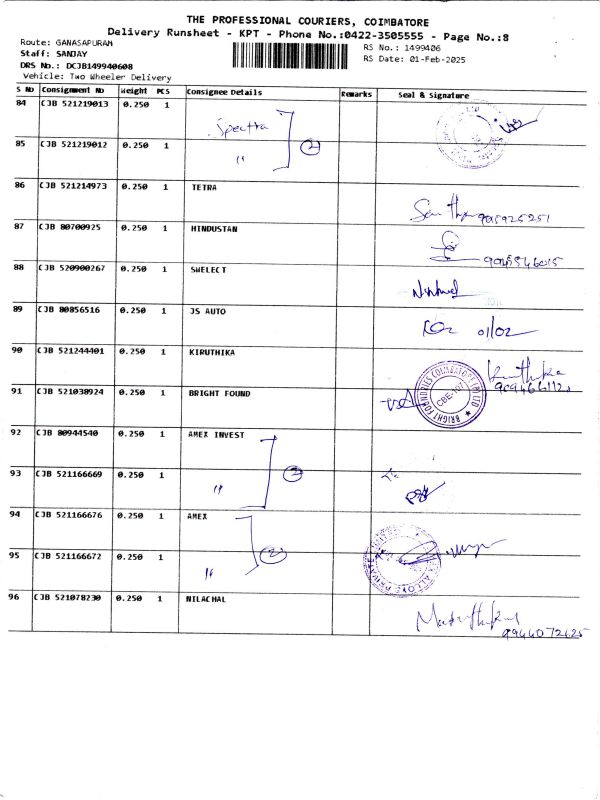 THE PROFESSIONAL COURIERS, COIMBATORE
Delivery Runsheet - KPT - Phone No.:0422-3505555 - Page No.:8
Route: GANASAPURAM
Staff: SANJAY
DRS No.: DCJB149940608
Vehicle: Two Wheeler Delivery
RS No.: 1499406
RS Date: 01-Feb-2025
S No Consignment No Weight PCS Consignee Details Remarks Seal & Signature
84 CJB 521219013 0.250 1 Spectra
85 CJB 521219012 0.250 1 " 2
86 CJB 521214973 0.250 1 TETRA
87 CJB 80700925 0.250 1 HINDUSTAN
88 CJB 520900267 0.250 1 SWELECT
89 CJB 80856516 0.250 1 JS AUTO 01/02
90 CJB 521244401 0.250 1 KIRUTHIKA
91 CJB 521038924 0.250 1 BRIGHT FOUND
BRIGHT FOUNDRIES COIMBATORE (P) LTD
CBE-107
92 CJB 80944540 0.250 1 AMEX INVEST
93 CJB 521166669 0.250 1 " 2
94 CJB 521166676 0.250 1 AMEX
95 CJB 521166672 0.250 1 " 2
96 CJB 521078230 0.250 1 NILACHAL
9944072625